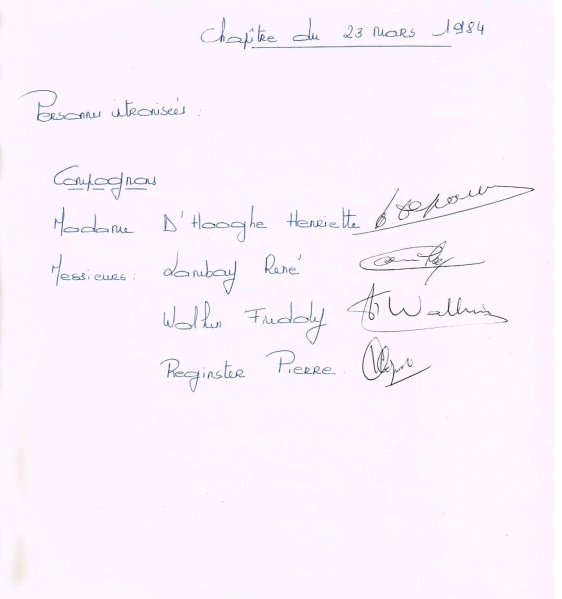 Chapître du 23 mars 1984
Personnes intronisées :
Compagnons
Madame D'Hooghe Henriette
Messieurs : Lambay René
Walhin Freddy
Reginster Pierre